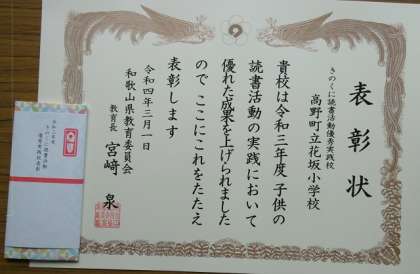 表彰状
きのくに読書活動優秀実践校
高野町立花坂小学校
貴校は令和三年度 子供の
読書活動の実践において
優れた成果を上げられました
ので ここにこれをたたえ
表彰します
令和四年三月一日
和歌山県教育委員会
教育長 宮﨑 泉
きのくに読書活動
優秀実践校表彰